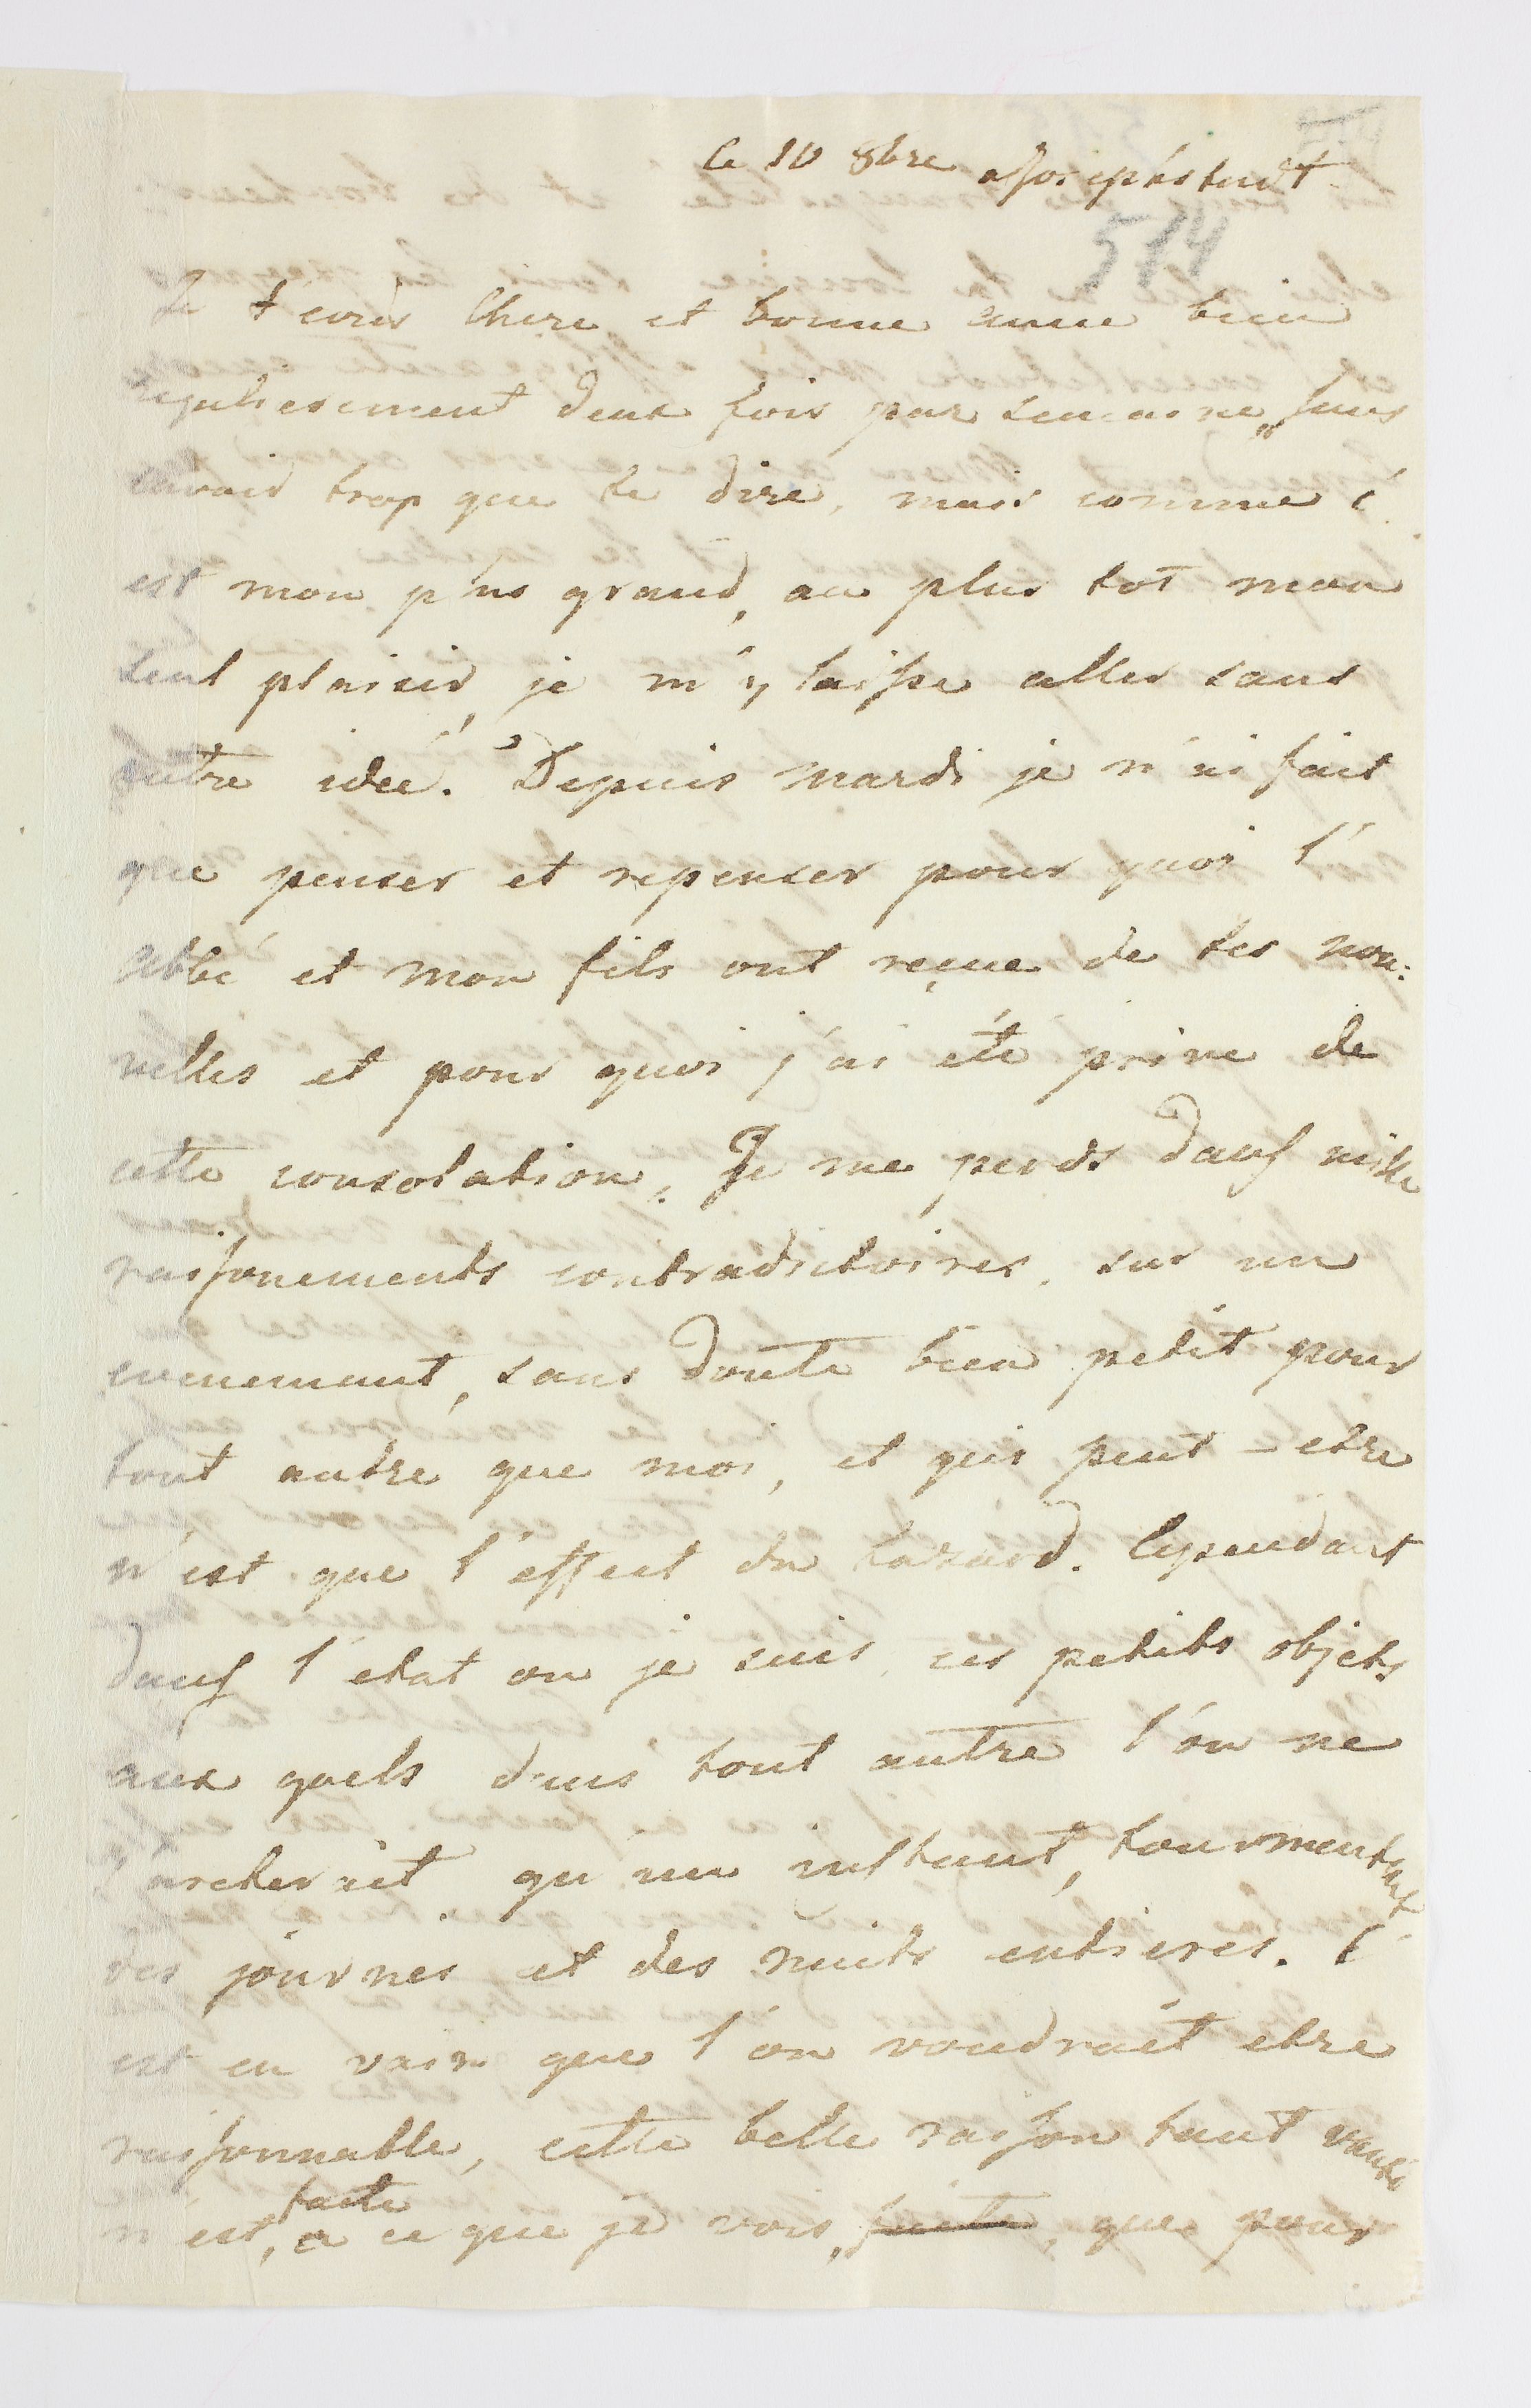 le 10 8bre a Josephstadt
514
Je t'ecris Chere et bonne amie bien
regulierement deux fois par semaine, sans
savoir trop que te dire, mais comme c'
est mon plus grand, au plus tot mon
seul plaisir, je m'y laisse aller sans
autre ideé. Depuis mardi je n'ai fait
que penser et repenser pour quoi l'
abbé et mon fils ont reçue de tes nou:
velles et pour quoi j'ai été prive de
cette consolation. Je me perds dans mille
raissonements contradictoires, sur un
evenement, sans doute bien petit pour
tout autre que moi, et qui peut-etre
n'est que l'effect du hazard. Cependant
dans l'etat ou je suis, ces petits objets
aux quels dans tout autre l'on ne
s'areterait qu'un instant, tourmentent
des journes et des nuits entieres. C'
est en vain que l'on voudrait etre
raissonnable, cette belle raisson tant vanté
n'est, faite a ce que je vois, faite, que pour